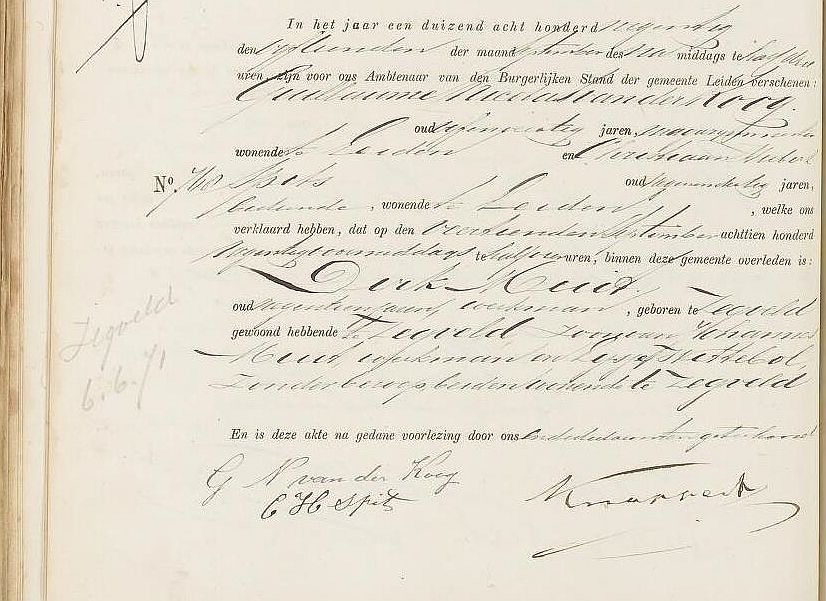 In het jaar een duizend acht honderd negentig
den vijftienden der maand September des na middags te half drie
uren, zijn voor ons Ambtenaar van den Burgerlijken Stand der gemeente Leiden verschenen:
Guillaume Nicolas van der Koog.
oud jaren,
wonende te Leiden en Christiaan Hubert
No. 768 Spits oud negenendertig jaren,
bediende, wonende te Leiden, welke ons
verklaard hebben, dat op den veertienden September achttien honderd
negentig voormiddags te half uren, binnen deze gemeente overleden is:
Dirk Meid
oud negentien jaren, werkman, geboren te Zegveld
gewoond hebbende te Zegveld Zoon van Johannes
Meid, werkman en
zonder beroep beiden wonende te Zegveld
Zegveld
6.6.71
En is deze akte na gedane voorlezing door ons en de declaranten geteekend
G N van der Koog
C H Spits